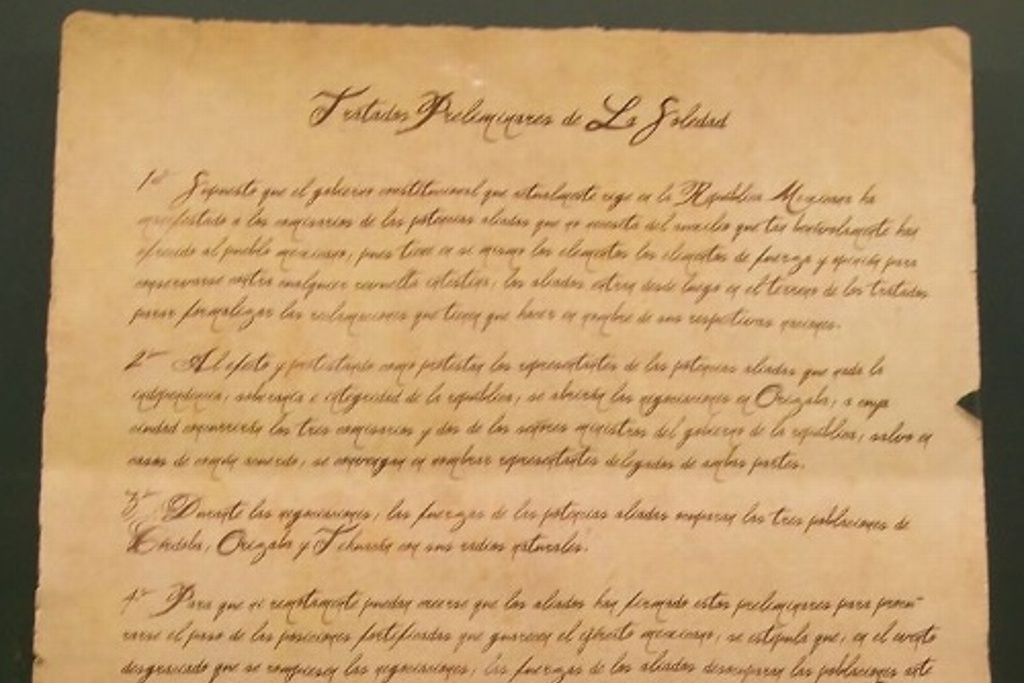 Tratados Preliminares de La Soledad
1º Supuesto que el gobierno constitucional que actualmente rige en la República Mexicana ha
manifestado a los comisarios de las potencias aliadas que no necesita del auxilio que tan benévolamente han
ofrecido al pueblo mexicano, pues tiene en si mismo los elementos los elementos de fuerza y opinión para
conservarse contra cualquier revuelta intestina, los aliados entran desde luego en el terreno de los tratados
para formalizar las reclamaciones que tienen que hacer en nombre de sus respectivas naciones.
2º Al efecto y protestando como protestan los representantes de las potencias aliadas que nada la
independencia, soberanía e integridad de la república, se abrirán las negociaciones en Orizaba, a cuya
ciudad concurrirán los tres comisarios y dos de los señores ministros del gobierno de la república, salvo en
casos de común acuerdo, se convengan en nombrar representantes delegados de ambas partes.
3º Durante las negociaciones, las fuerzas de las potencias aliadas ocuparan las tres poblaciones de
Córdoba, Orizaba y Tehuacán con sus radios naturales.
4º Para que ni remotamente puedan creerse que los aliados han firmado estos preliminares para procu-
rarse el paso de las posiciones fortificadas que guarecen el ejército mexicano, se estipula que, en el evento
desgraciado que se rompiesen las negociaciones, las fuerzas de los aliados desocuparan las poblaciones ante